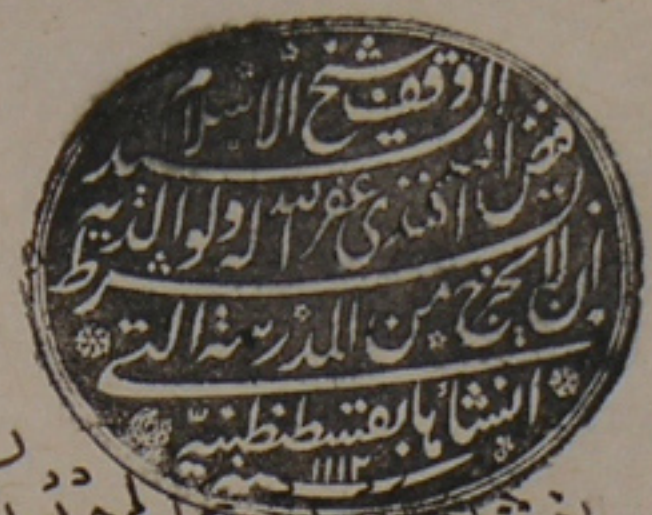 الوقف شيخ الاسلام السيد
فيض الله افندى غفر الله له ولوالديه بشرط
ان لا يخرج من المدرسة التى
انشأها بقسطنطنيه
سنه ١١١٢